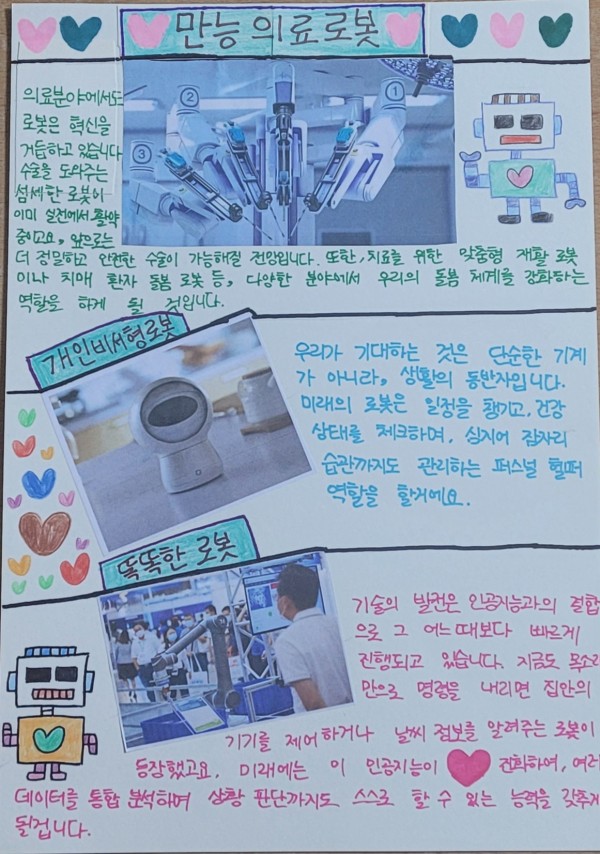 만능 의료로봇
의료분야에서도
로봇은 혁신을
거듭하고 있습니다
수술을 도와주는
섬세한 로봇이
이미 실전에서 활약
중이고요, 앞으로는
더 정밀하고 안전한 수술이 가능해질 전망입니다. 또한, 치료를 위한 맞춤형 재활 로봇
이나 치매 환자 돌봄 로봇 등, 다양한 분야에서 우리의 돌봄 체계를 강화하는
역할을 하게 될 것입니다.
①
②
③
개인비서형로봇
우리가 기대하는 것은 단순한 기계
가 아니라, 생활의 동반자입니다.
미래의 로봇은 일정을 챙기고, 건강
상태를 체크하며, 심지어 잠자리
습관까지도 관리하는 퍼스널 헬퍼
역할을 할거예요.
똑똑한 로봇
기술의 발전은 인공지능과의 결합
으로 그 어느때보다 빠르게
진행되고 있습니다. 지금도 목소리
만으로 명령을 내리면 집안의
기기를 제어하거나 날씨 정보를 알려주는 로봇이
등장했고요. 미래에는 이 인공지능이 진화하여, 여러
데이터를 통합 분석하며 상황 판단까지도 스스로 할 수 있는 능력을 갖추게
될겁니다.